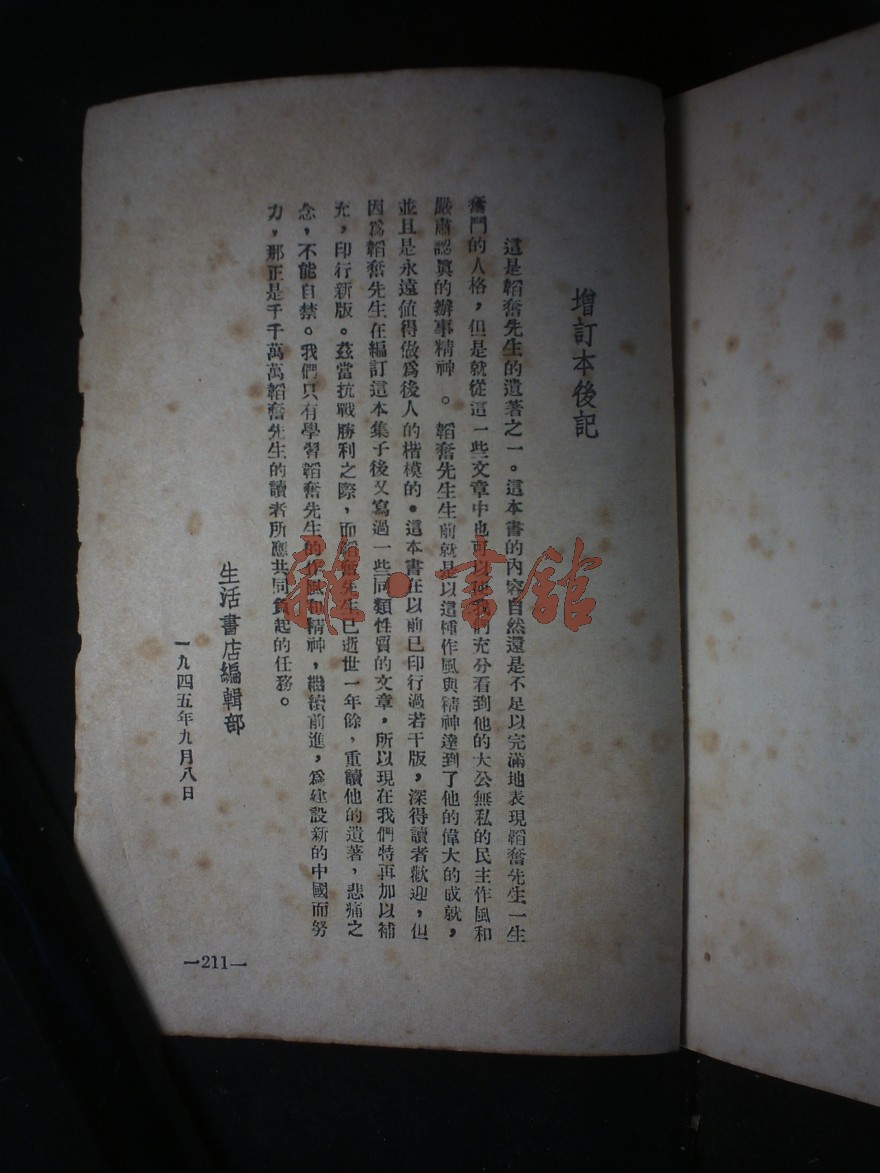 增訂本後記
這是韜奮先生的遺著之一。這本書的內容自然還是不足以完滿地表現韜奮先生一生
奮鬥的人格，但是就從這一些文章中也可以使我們充分看到他的大公無私的民主作風和
嚴肅認眞的辦事精神。韜奮先生生前就是以這種作風與精神達到了他的偉大的成就，
並且是永遠値得做爲後人的楷模的。這本書在以前已印行過若干版，深得讀者歡迎，但
因爲韜奮先生在編訂這本集子後又寫過一些同類性質的文章，所以現在我們特再加以補
充，印行新版。茲當抗戰勝利之際，而韜奮先生已逝世一年餘，重讀他的遺著，悲痛之
念，不能自禁。我們只有學習韜奮先生的作風和精神，繼續前進，爲建設新的中國而努
力，那正是千千萬萬韜奮先生的讀者所應共同負起的任務。
生活書店編輯部
一九四五年九月八日
—211—
雜·書館